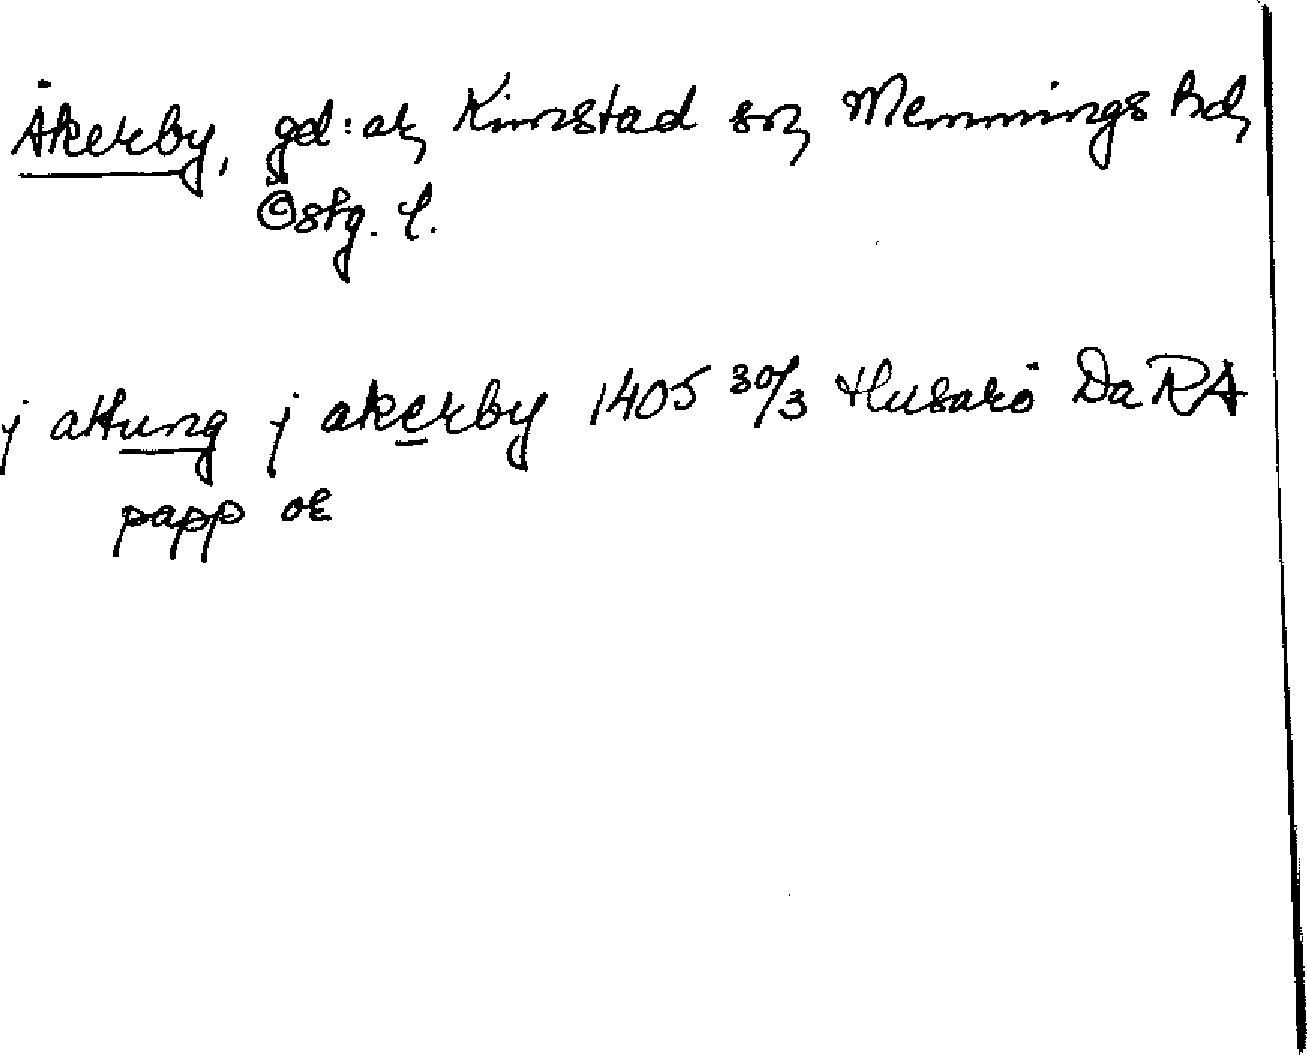 Åkerby, gd:ar, Kimstad sn, Memmings hd,
Östg. l.
j attung j akerby 1405 30/3 Husarö Da RA
papp or